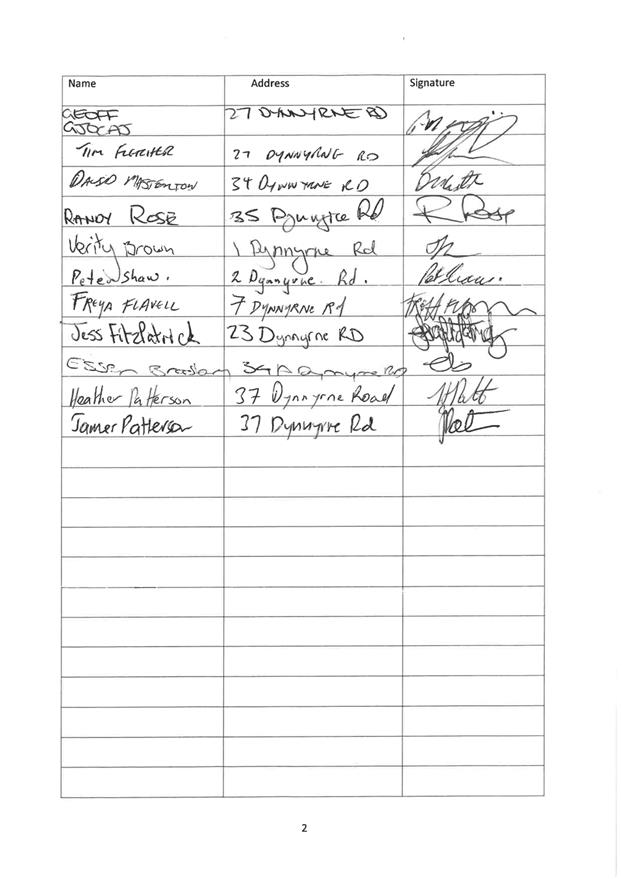 Name Address Signature
GEOFF 27 DYNNYRNE RD
GJOCAJ
TIM FLETCHER 27 DYNNYRNE RD
DAVID MASTERTON 34 DYNNYRNE RD
RANDY ROSE 35 Dynnyrne Rd R Rose
Verity Brown 1 Dynnyrne Rd
Peter Shaw. 2 Dynnyrne. Rd.
FREYA FLAVELL 7 DYNNYRNE Rd
Jess Fitzpatrick 23 Dynnyrne RD
34A Dynnyrne RD
Heather Patterson 37 Dynnyrne Road H Patt
James Patterson 37 Dynnyrne Rd
2